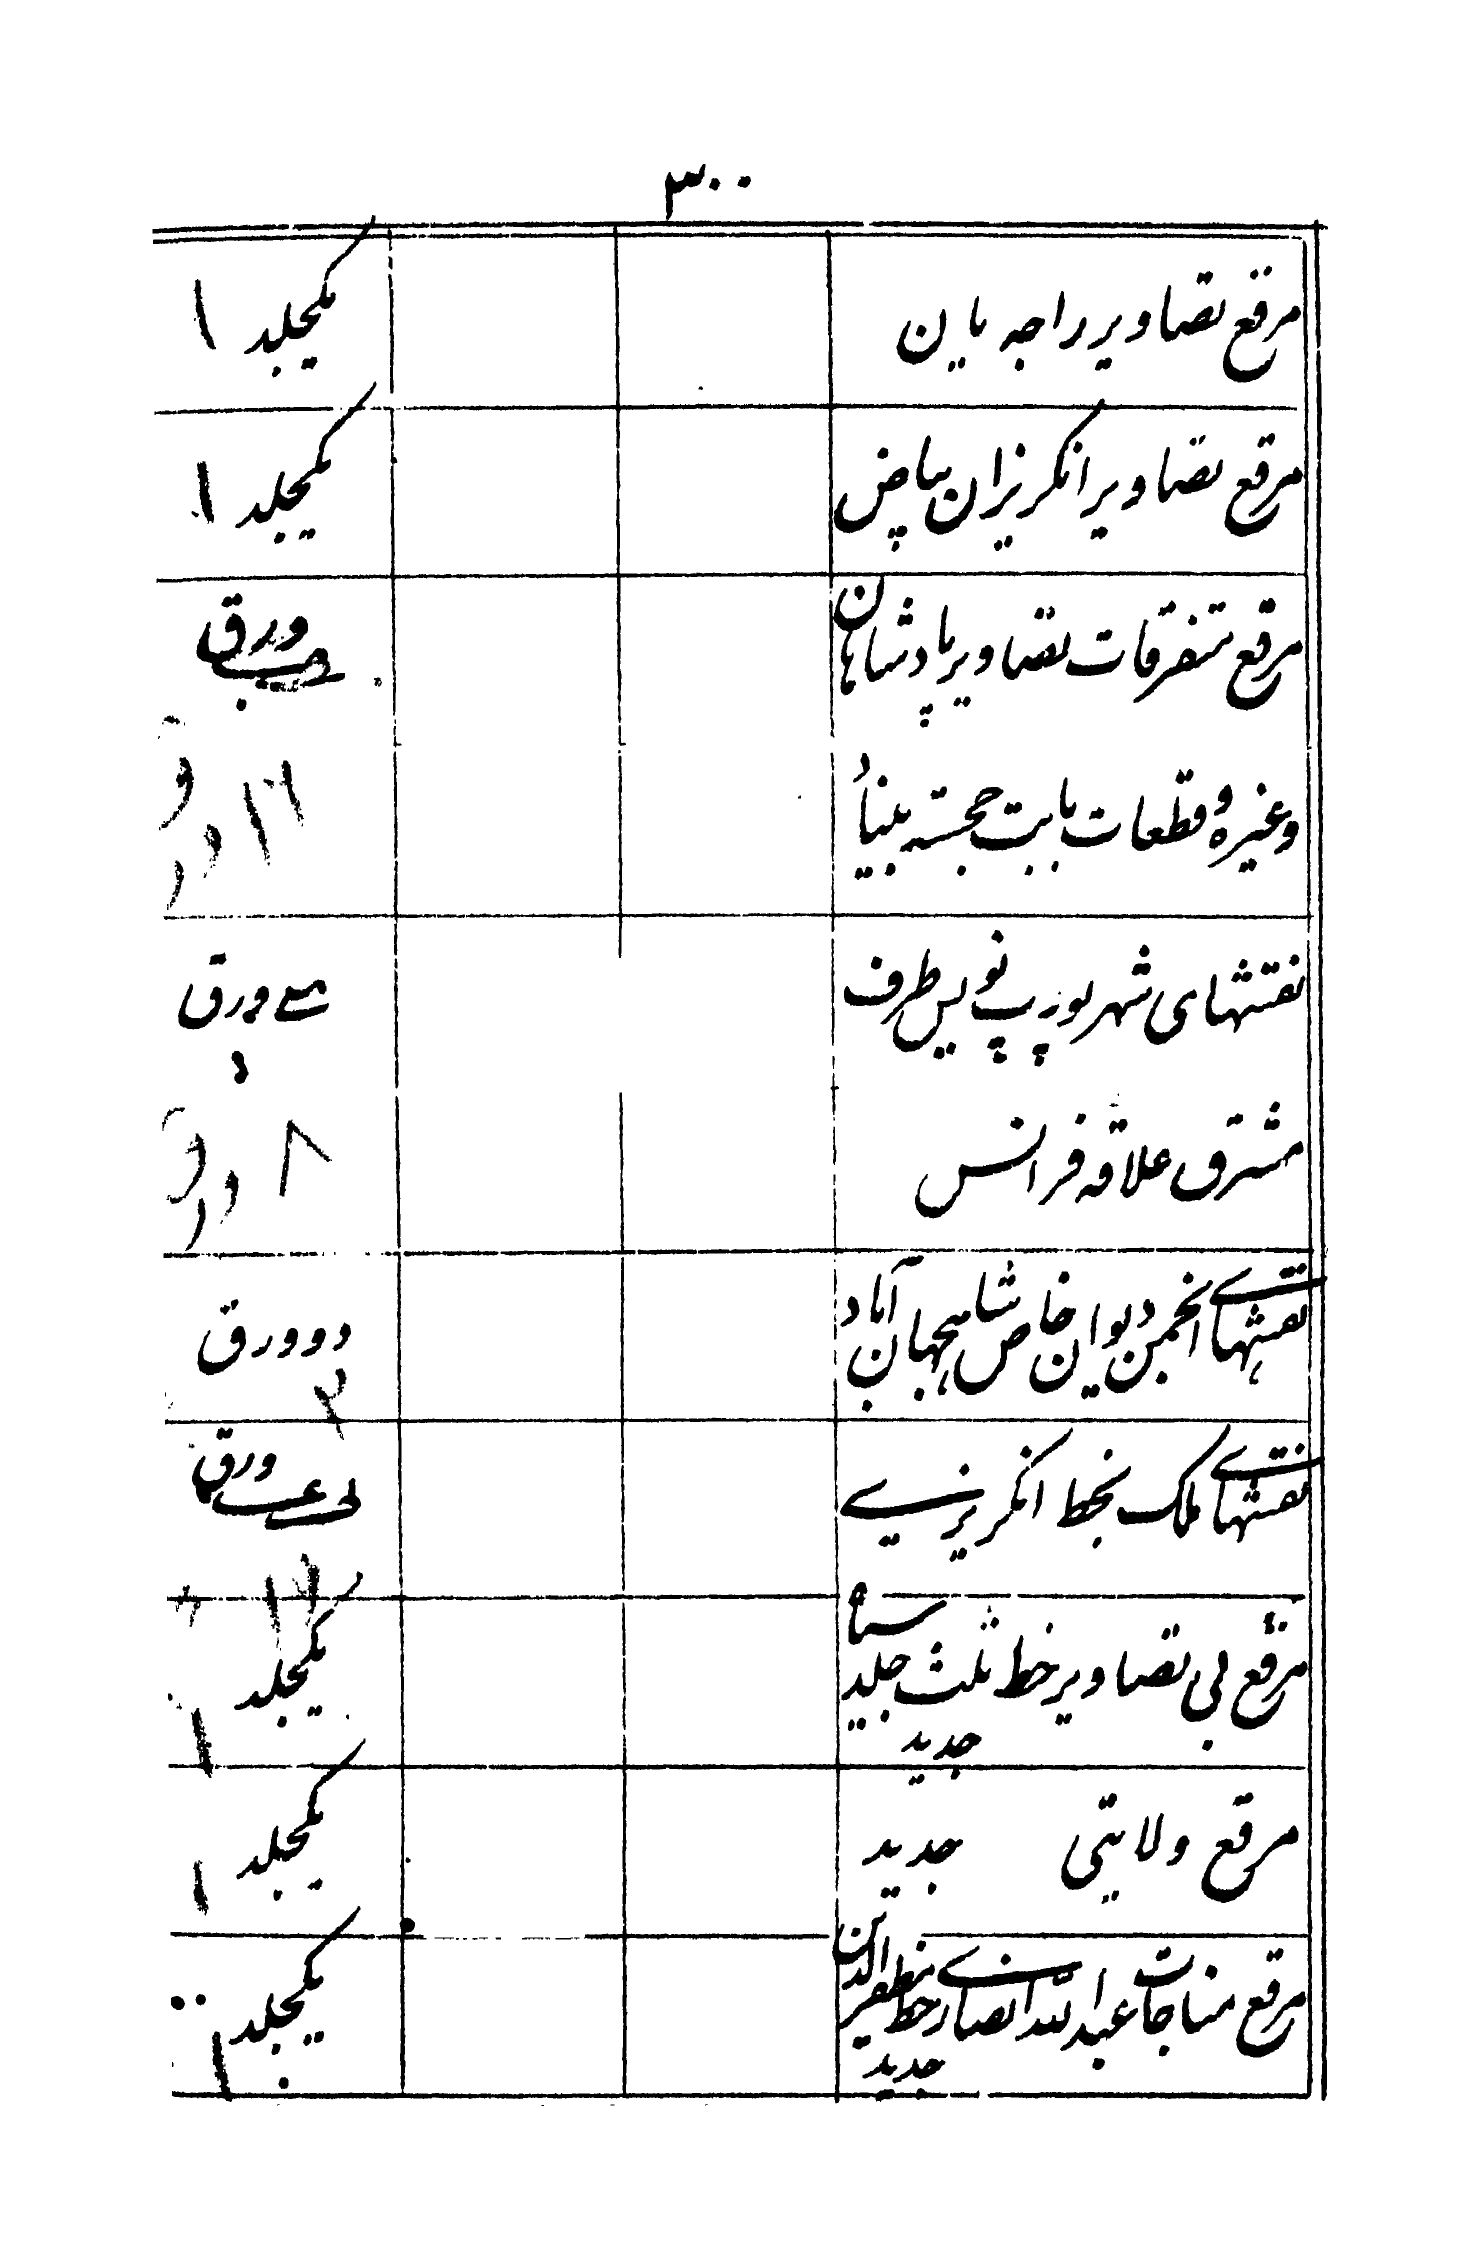 ۳۰۰
مرقع تصاویر راجه یان یکجلد ۱
مرقع تصاویر انکریزان بیاض یکجلد ۱
مرقع متفرقات تصاویر پادشاهان ورق
وغیره و قطعات بابت خجسته بنیاد ۱۲
نقشهای شهر یورپ نویس طرف ورق
مشرق علاقه فرانس ۸
نقشهای انجمن دیوان خاص شاهجهان آباد دو ورق ۲
نقشهای ملک بخط انکریزی ورق
مرقع بی تصاویر خط ثلث جلد سیاه یکجلد ۱
جدید
مرقع ولایتی جدید یکجلد ۱
مرقع مناجات عبدالله انصاری خط مظفرالدین یکجلد ۱
جدید